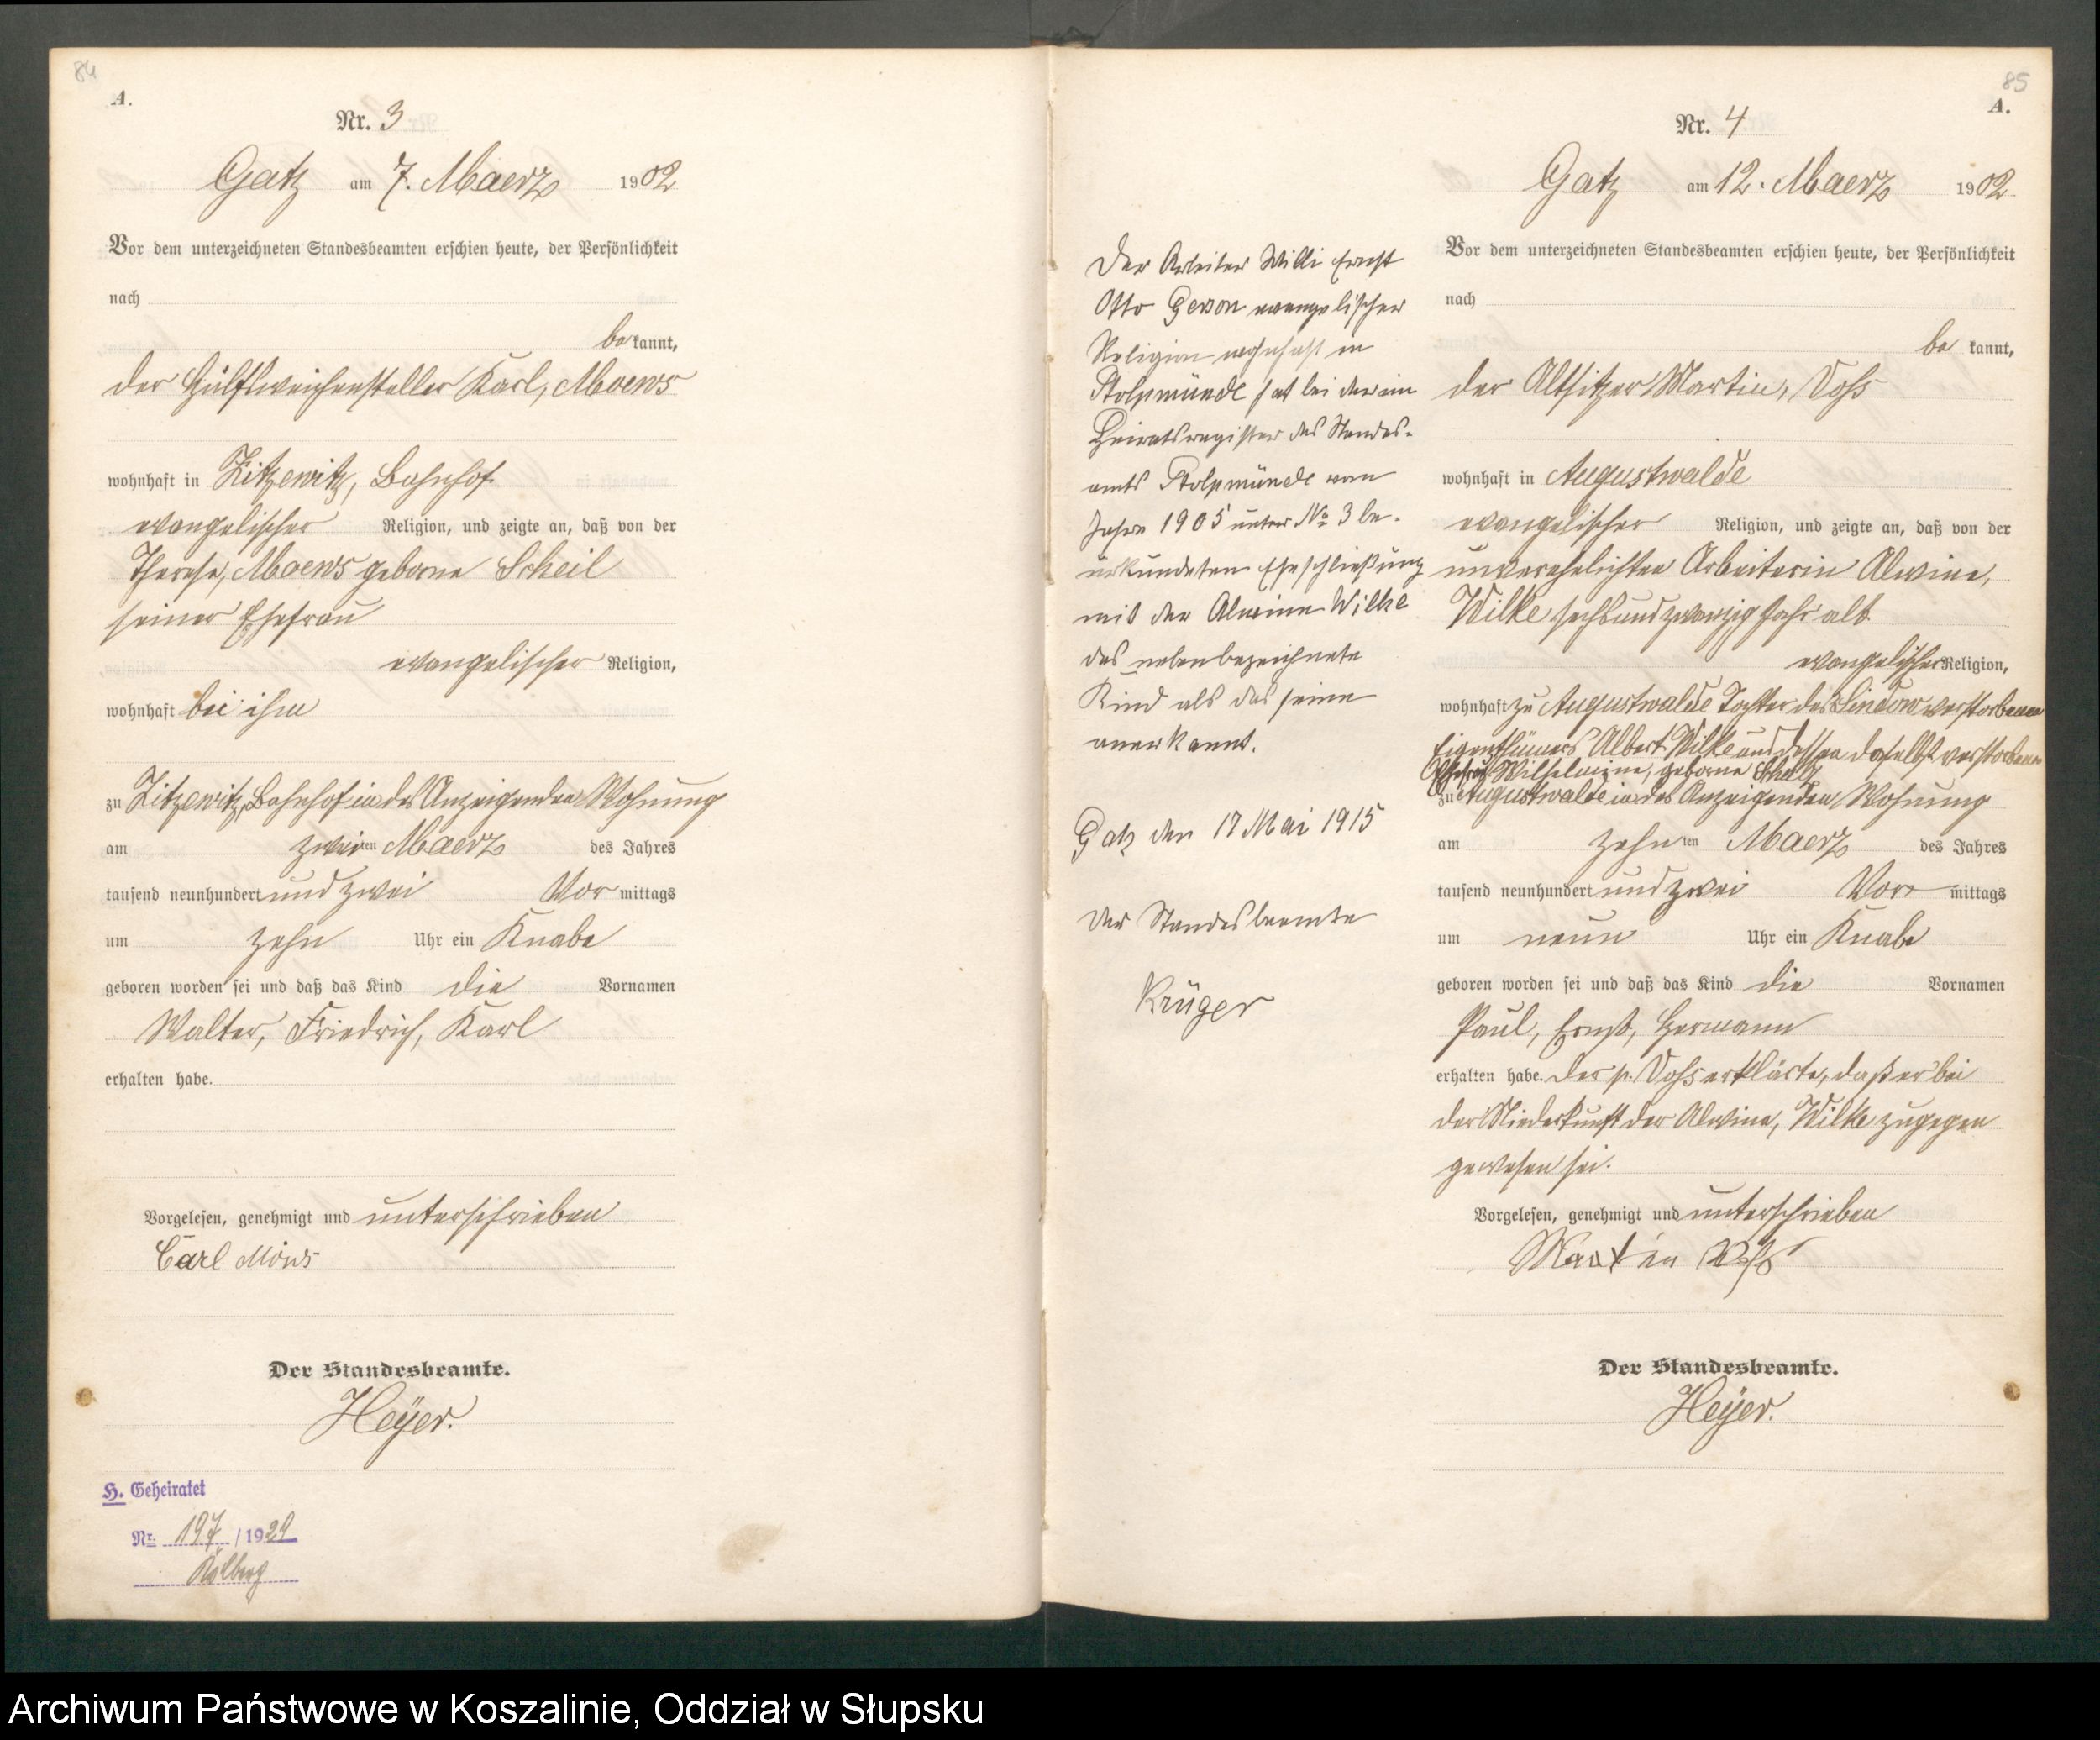 84
A.
Nr. 3
Gatz am 7. Maerz 1902
Vor dem unterzeichneten Standesbeamten erschien heute, der Persönlichkeit
nach
bekannt,
der Hülfsweichensteller Karl, Moews
wohnhaft in Zitzewitz, Bahnhof
evangelischer Religion, und zeigte an, daß von der
Therese, Moews geborne Scheil
seiner Ehefrau
evangelischer Religion,
wohnhaft bei ihm
zu Zitzewitz, Bahnhof in des Anzeigenden Wohnung
am zweiten Maerz des Jahres
tausend neunhundert und zwei Vormittags
um zehn Uhr ein Knabe
geboren worden sei und daß das Kind die Vornamen
Walter, Friedrich, Karl
erhalten habe.
Vorgelesen, genehmigt und unterschrieben
Carl Möws
Der Standesbeamte.
Heyer.
H. Geheiratet
Nr. 197 / 1929
Kolberg
Der Arbeiter Willi Ernst
Otto Gerson evangelischer
Religion wohnhaft in
Stolpmünde hat bei der im
Heiratsregister des Standes-
amts Stolpmünde vom
Jahre 1905 unter No 3 be-
urkundeten Eheschließung
mit der Alwine Wilke
das nebenbezeichnete
Kind als das seine
anerkannt.
Gatz den 17 Mai 1915
Der Standesbeamte
Krüger
85
A.
Nr. 4
Gatz am 12. Maerz 1902
Vor dem unterzeichneten Standesbeamten erschien heute, der Persönlichkeit
nach
bekannt,
der Altsitzer Martin, Voß
wohnhaft in Augustwalde
evangelischer Religion, und zeigte an, daß von der
unverehelichten Arbeiterin Alwine,
Wilke sechsundzwanzig Jahr alt
evangelischer Religion,
wohnhaft zu Augustwalde Tochter des zu Lindow verstorbenen
Eigenthümers Albert Wilke und dessen daselbst verstorbenen
Ehefrau Wilhelmine, geborne
zu Augustwalde in des Anzeigenden Wohnung
am zehnten Maerz des Jahres
tausend neunhundert und zwei Vormittags
um neun Uhr ein Knabe
geboren worden sei und daß das Kind die Vornamen
Paul, Ernst, Hermann
erhalten habe. Der p. Voß erklärte, daß er bei
der Niederkunft der Alwine, Wilke zugegen
gewesen sei.
Vorgelesen, genehmigt und unterschrieben
Martin Voß
Der Standesbeamte.
Heyer.
Archiwum Państwowe w Koszalinie, Oddział w Słupsku